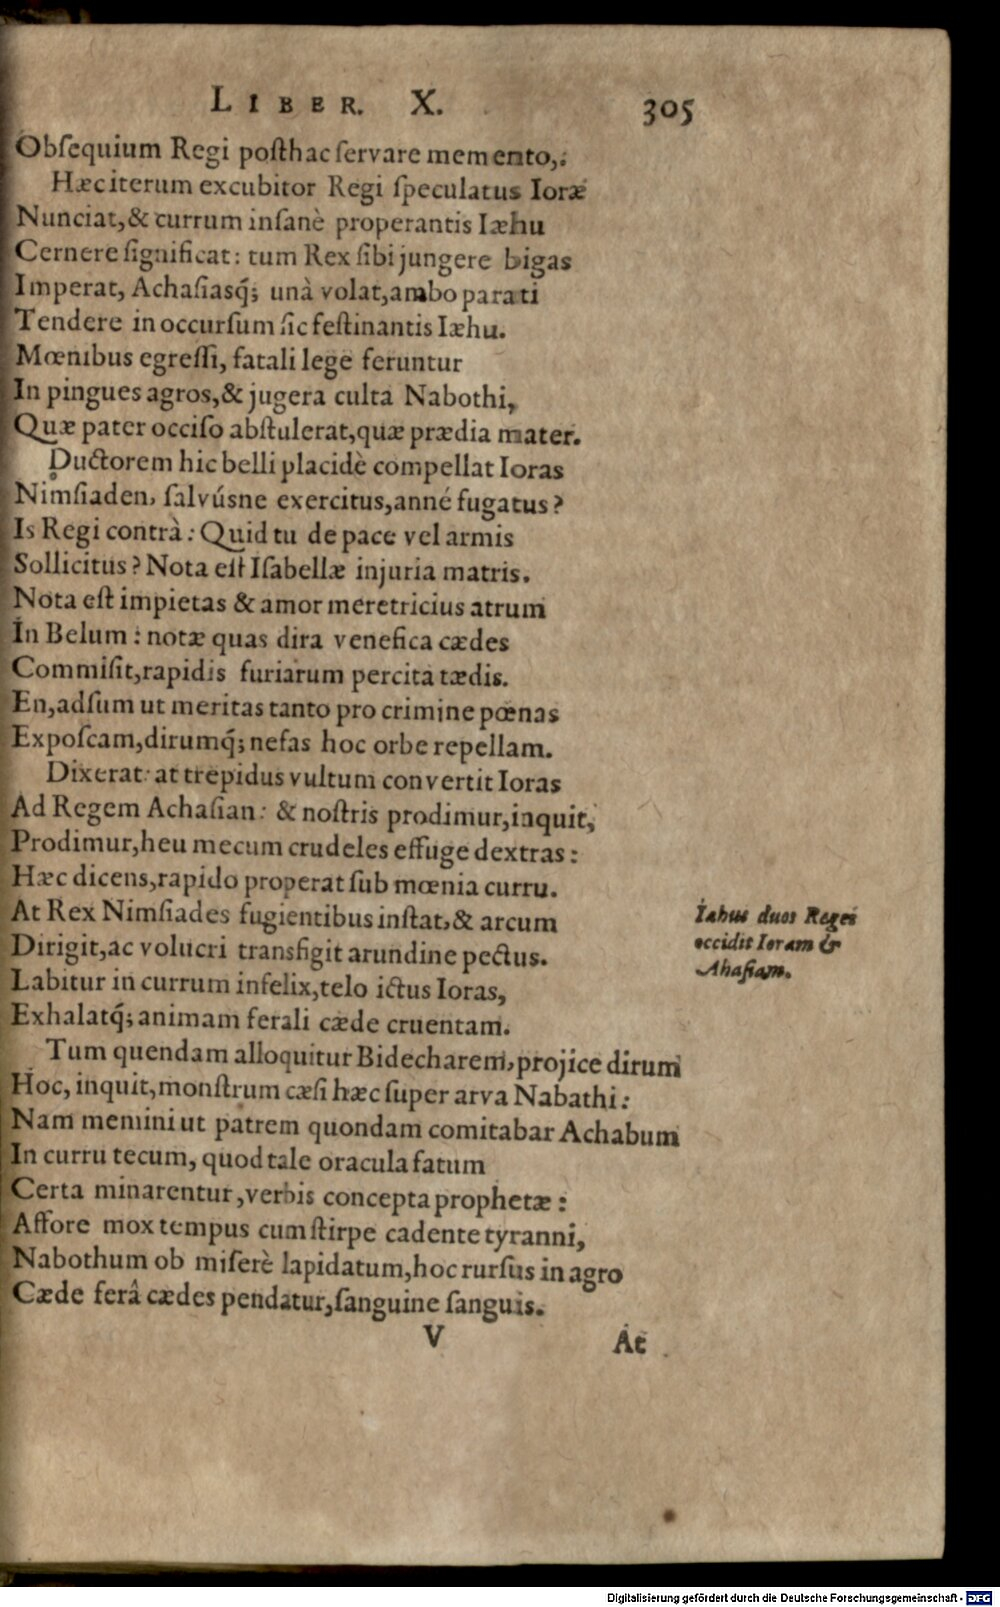 LIBER. X. 305
Obſequium Regi poſthac ſervare memento,.
Hæc iterum excubitor Regi ſpeculatus Ioræ
Nunciat, & currum inſanè properantis Iæhu
Cernere ſignificat: tum Rex ſibi jungere bigas
Imperat, Achaſiasq́; unà volat, ambo parati
Tendere in occurſum ſic feſtinantis Iæhu.
Mœnibus egreſſi, fatali lege feruntur
In pingues agros, & jugera culta Nabothi,
Quæ pater occiſo abſtulerat, quæ prædia mater.
Ductorem hic belli placidè compellat Ioras
Nimſiaden, ſalvúsne exercitus, anné fugatus?
Is Regi contrà: Quid tu de pace vel armis
Sollicitus? Nota eſt Iſabellæ injuria matris.
Nota eſt impietas & amor meretricius atrum
In Belum: notæ quas dira venefica cædes
Commiſit, rapidis furiarum percita tædis.
En, adſum ut meritas tanto pro crimine pœnas
Expoſcam, dirumq́; nefas hoc orbe repellam.
Dixerat: at trepidus vultum convertit Ioras
Ad Regem Achaſian: & noſtris prodimur, inquit,
Prodimur, heu mecum crudeles effuge dextras:
Hæc dicens, rapido properat ſub mœnia curru.
At Rex Nimſiades fugientibus inſtat, & arcum
Dirigit, ac volucri transfigit arundine pectus.
Labitur in currum infelix, telo ictus Ioras,
Exhalatq́; animam ferali cæde cruentam.
Tum quendam alloquitur Bidecharem, projice dirum
Hoc, inquit, monſtrum cæſi hæc ſuper arva Nabathi:
Nam memini ut patrem quondam comitabar Achabum
In curru tecum, quod tale oracula fatum
Certa minarentur, verbis concepta prophetæ:
Affore mox tempus cum ſtirpe cadente tyranni,
Nabothum ob miſerè lapidatum, hoc rurſus in agro
Cæde ferâ cædes pendatur, ſanguine ſanguis.
V At
Iahus duos Reges
occidit Ioram &
Ahaſiam.
Digitalisierung gefördert durch die Deutsche Forschungsgemeinschaft - DFG